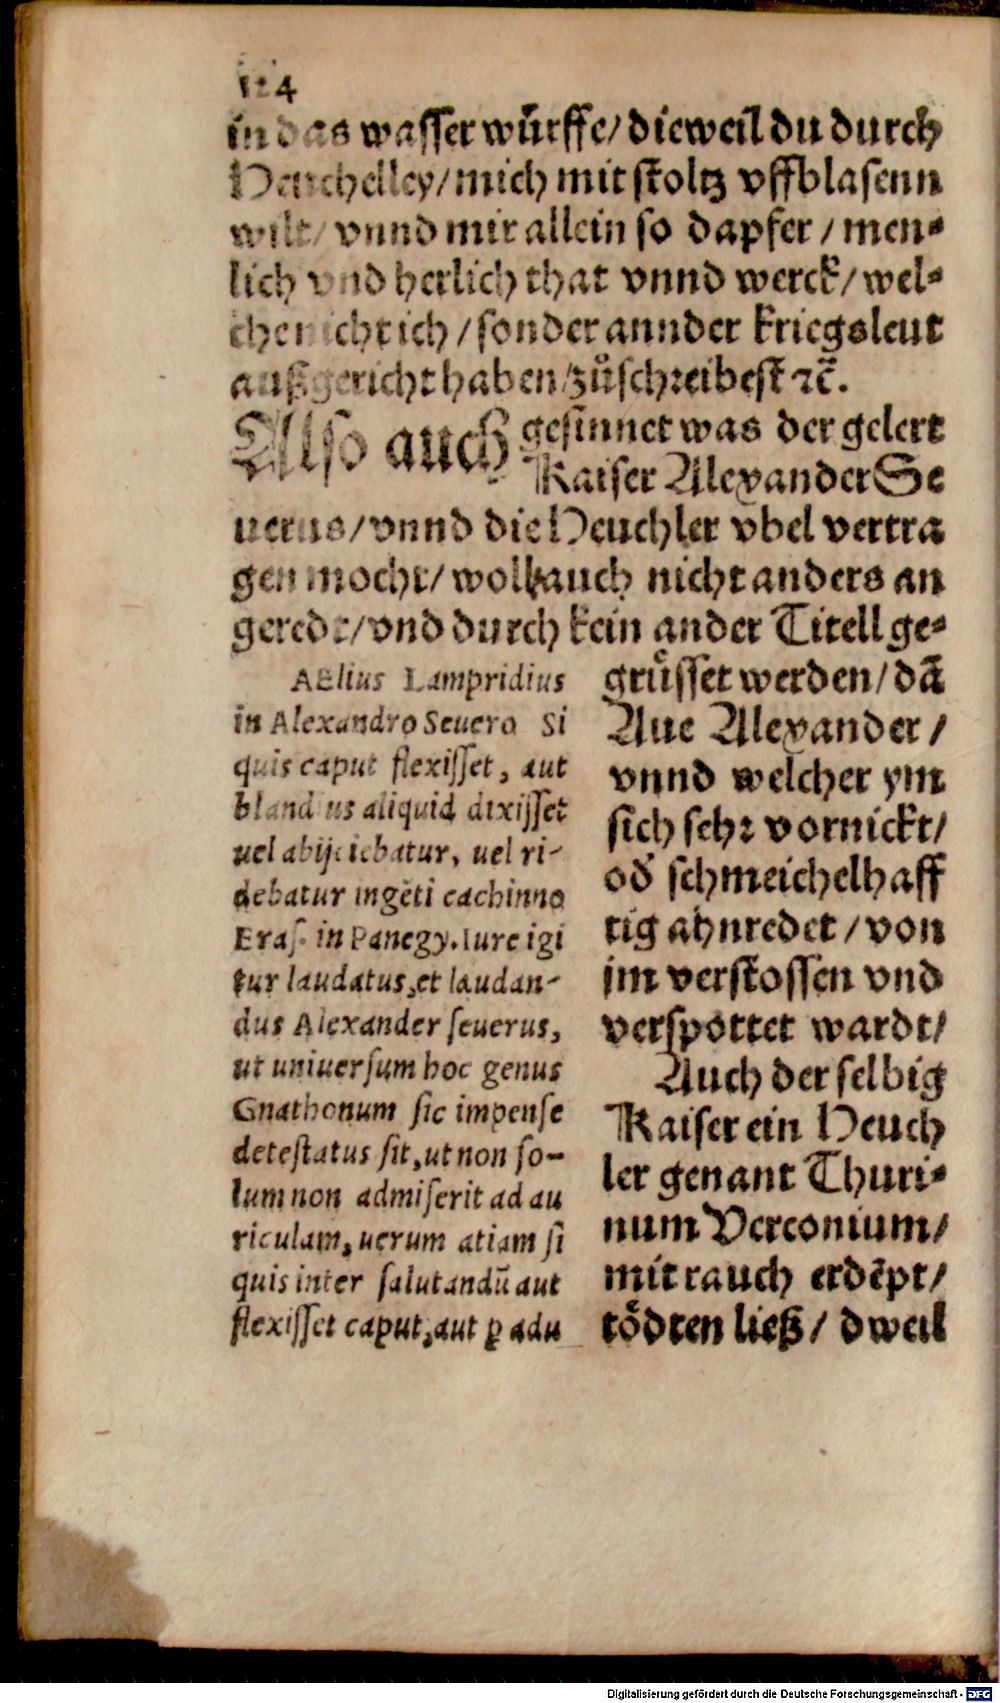 124
in das wasser wůrffe/ dieweil du durch
Heuchelley/ mich mit stoltz vffblasenn
wilt/ vnnd mir allein so dapfer / men⸗
lich vnd herlich that vnnd werck/ wel⸗
che nicht ich / sonder annder kriegsleut
außgericht haben/ zůschreibest ꝛc̄.
Also auch gesinnet was der gelert
Kaiser Alexander Se
uerus/ vnnd die Heuchler vbel vertra
gen mocht/ wolt auch nicht anders an
geredt/ vnd durch kein ander Titell ge⸗
grůsset werden/ dā
Aue Alexander /
vnnd welcher ym
sich sehr vornickt/
od̕ schmeichelhaff
tig ahnredet / von
jm verstossen vnd
verspottet wardt/
Auch der selbig
Kaiser ein Heuch
ler genant Thuri⸗
num Verconium/
mit rauch erdēpt/
tödten ließ/ dweil
AElius Lampridius
in Alexandro Seuero Si
quis caput flexisset, aut
blandius aliquid dixisset
uel abijciebatur, uel ri-
debatur ingēti cachinno
Eras. in Panegy. Iure igi
tur laudatus, et laudan-
dus Alexander seuerus,
ut uniuersum hoc genus
Gnathonum sic impense
detestatus sit, ut non so-
lum non admiserit ad au
riculam, uerum atiam si
quis inter salutandū aut
flexisset caput, aut ꝑ adu
Digitalisierung gefördert durch die Deutsche Forschungsgemeinschaft - DFG